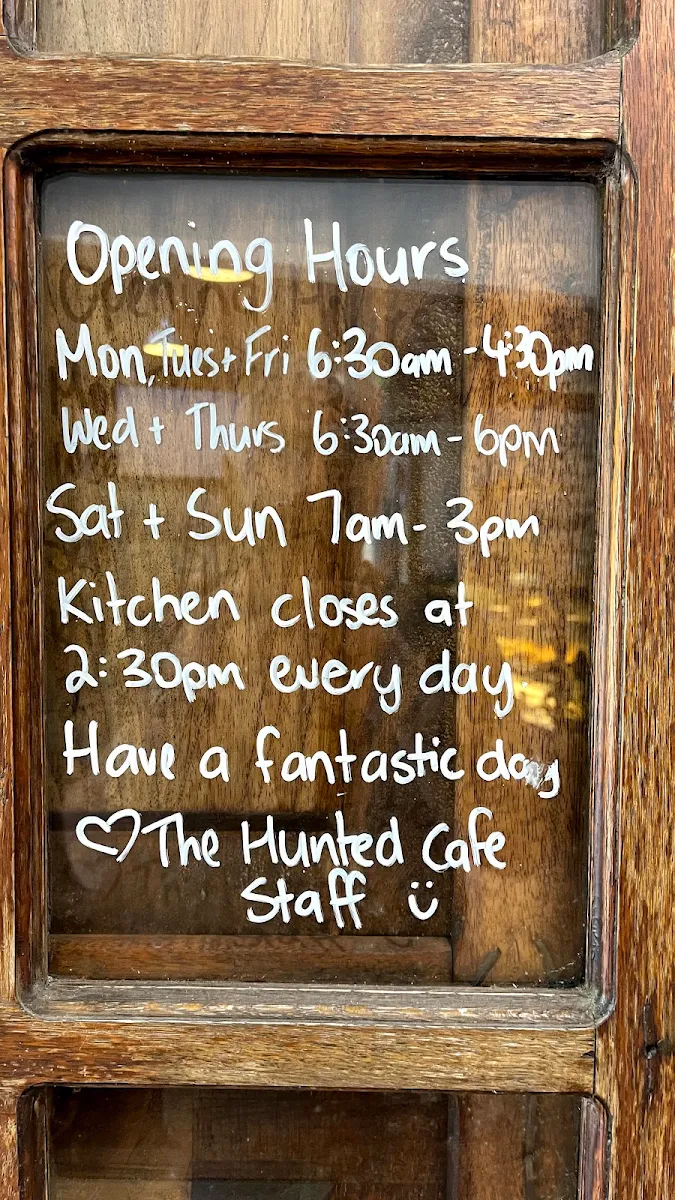 Opening Hours
Mon, Tues + Fri 6:30am - 4:30pm
Wed + Thurs 6:30am - 6pm
Sat + Sun 7am - 3pm
Kitchen closes at
2:30pm every day.
Have a fantastic day
♡ The Hunted Cafe
Staff ü